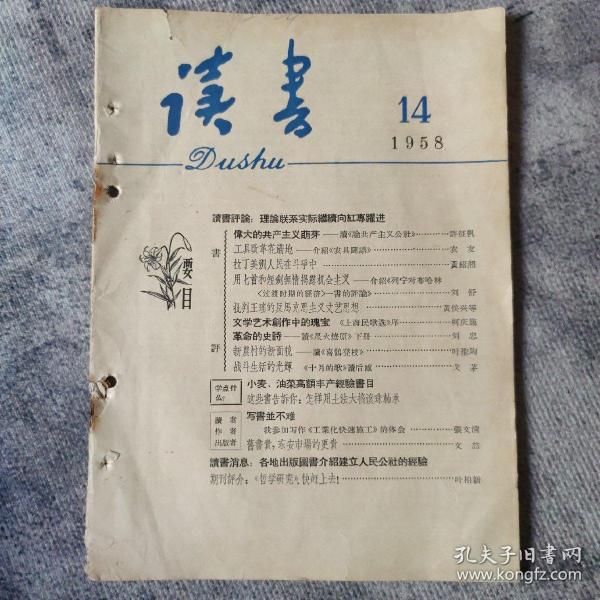 读書
Dushu
14
1958
讀書評論：理論联系实际繼續向紅專躍进
要目
書評
偉大的共产主义萌芽——讀《論共产主义公社》——許征帆
工具改革花满地——介紹《农具圖譜》——农友
拉丁美洲人民在斗爭中——黃紹湘
用七首和短劍無情揭露机会主义——介紹《列宁对布哈林
〈过渡时期的經济〉一書的評論》——刘
批判王瑤的反馬克思主义文艺思想——黃侯兴等
文学艺术創作中的瑰宝 《上海民歌选》序——柯庆施
革命的史詩——讀《星火燎原》下册——刘忠
新農村的新面貌——讀《喜鵲登枝》——叶聖陶
战斗生活的光輝 《十月的歌》讀后感——戈茅
学点什么？
小麦、油菜高額丰产經驗書目
这些書告訴你：怎样用土法大搞滾珠軸承
讀者
作者
出版者
写書並不难
我参加写作《工業化快速施工》的体会——張文
舊書貴，东安市場的更貴——文
讀書消息：各地出版圖書介紹建立人民公社的經驗
期刊評介：《哲学研究》，快赶上去！——叶柏
孔夫子旧书网
www.kongfz.com